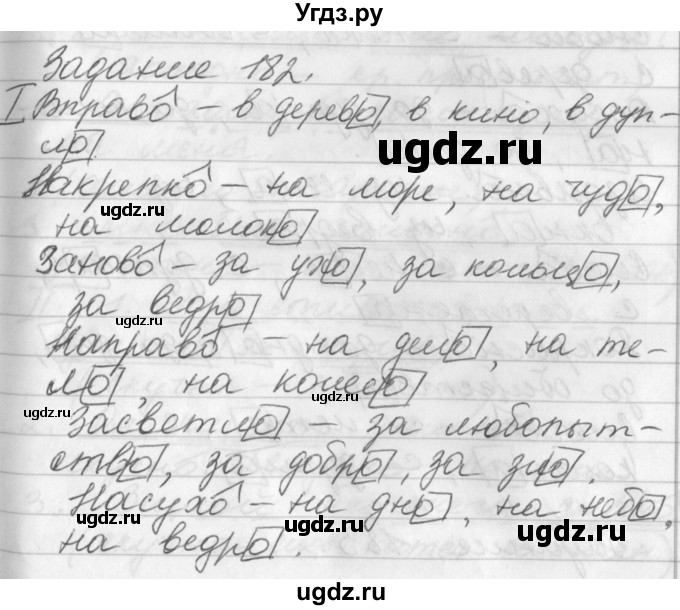 Угдз.ру
Задание 182.
I Вправо – в дерево, в кино, в дуп-
ло.
Накрепко – на море, на чудо,
на молоко
Заново – за ухо, за кольцо,
за ведро
Направо – на дело, на те-
ло, на колесо
Засветло – за любопыт-
ство, за добро, за зло.
Насухо – на дно, на небо,
на ведро.
ugdz.ru
ugdz.ru
ugdz.ru
ugdz.ru
ugdz.ru
ugdz.ru
ugdz.ru
ugdz.ru
ugdz.ru